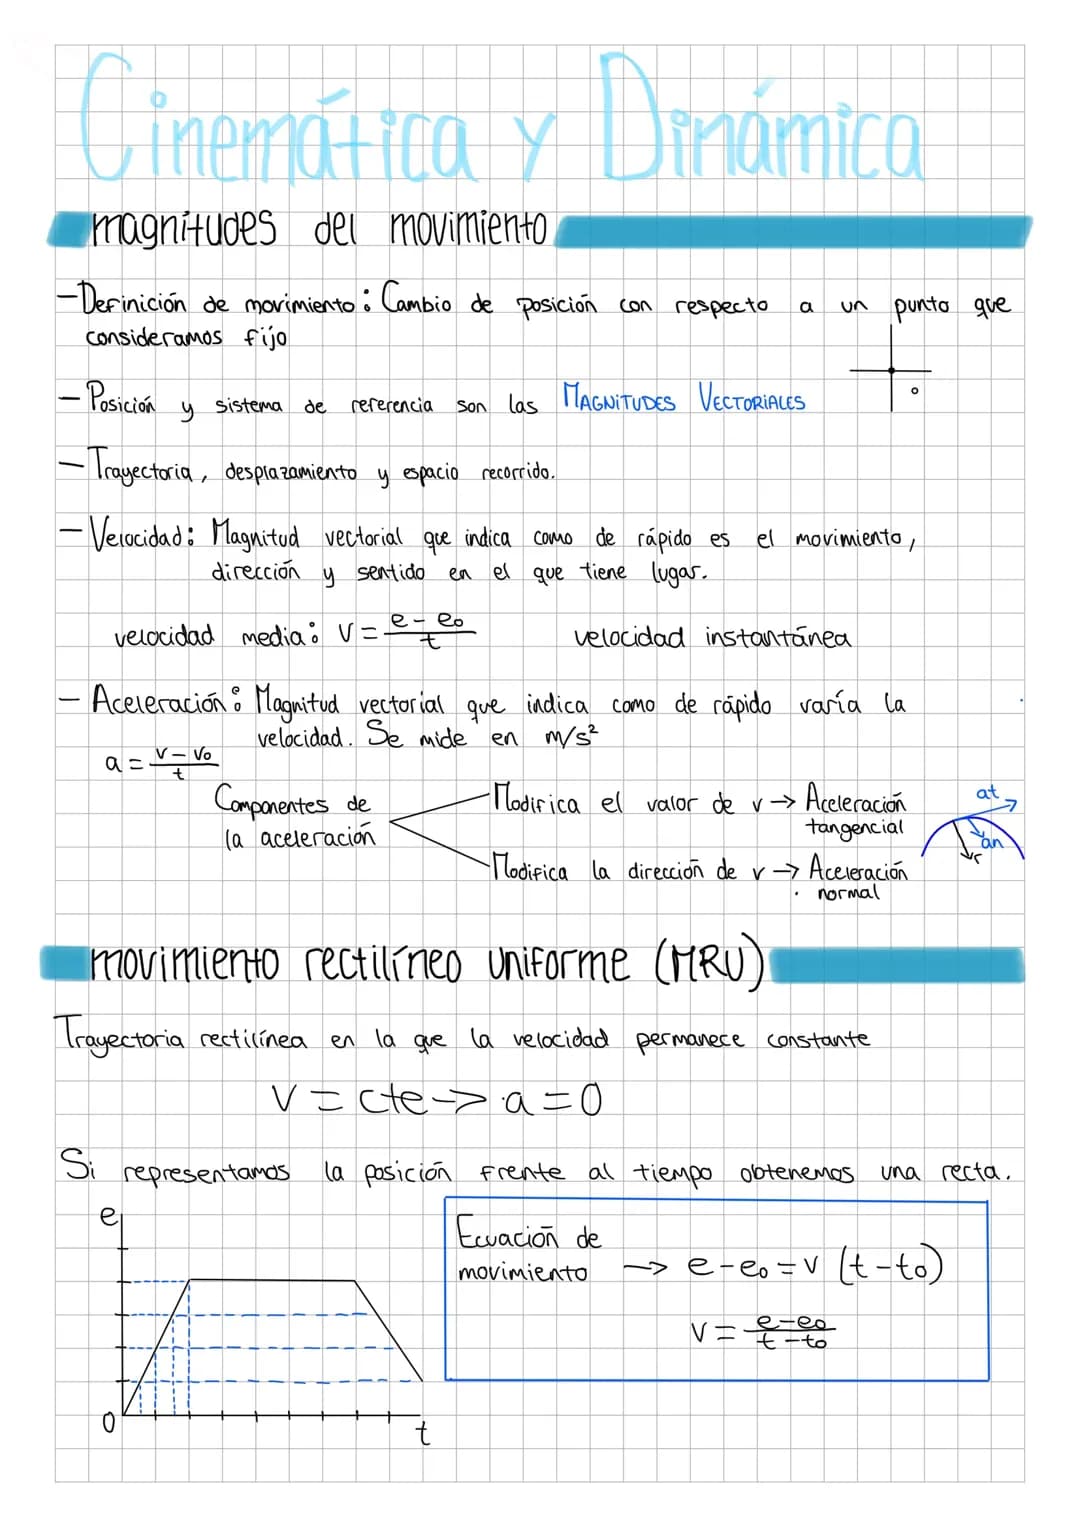 Cinemática y Dinámica
magnitudes del movimiento
- Definición de movimiento: Cambio de posición con respecto a un punto que
consideramos fijo
- Posición y sistema de referencia son las MAGNITUDES VECTORIALES
- Trayectoria, desplazamiento y espacio recorrido.
- Velocidad: Magnitud vectorial que indica como de rápido es el movimiento,
dirección y sentido en el que tiene lugar.
velocidad media: v = (e - e₀)/t velocidad instantánea
- Aceleración: Magnitud vectorial que indica como de rápido varía la
velocidad. Se mide en m/s²
a = (v - v₀)/t
Componentes de
la aceleración
Modifica el valor de v → Aceleración
tangencial
Modifica la dirección de v → Aceleración
normal
at
an
r
movimiento rectilíneo uniforme (MRU)
Trayectoria rectilínea en la que la velocidad permanece constante
v = cte → a = 0
Si representamos la posición frente al tiempo obtenemos una recta.
e
0
t
Ecuación de
movimiento → e - e₀ = v (t - t₀)
v = (e - e₀)/(t - t₀)